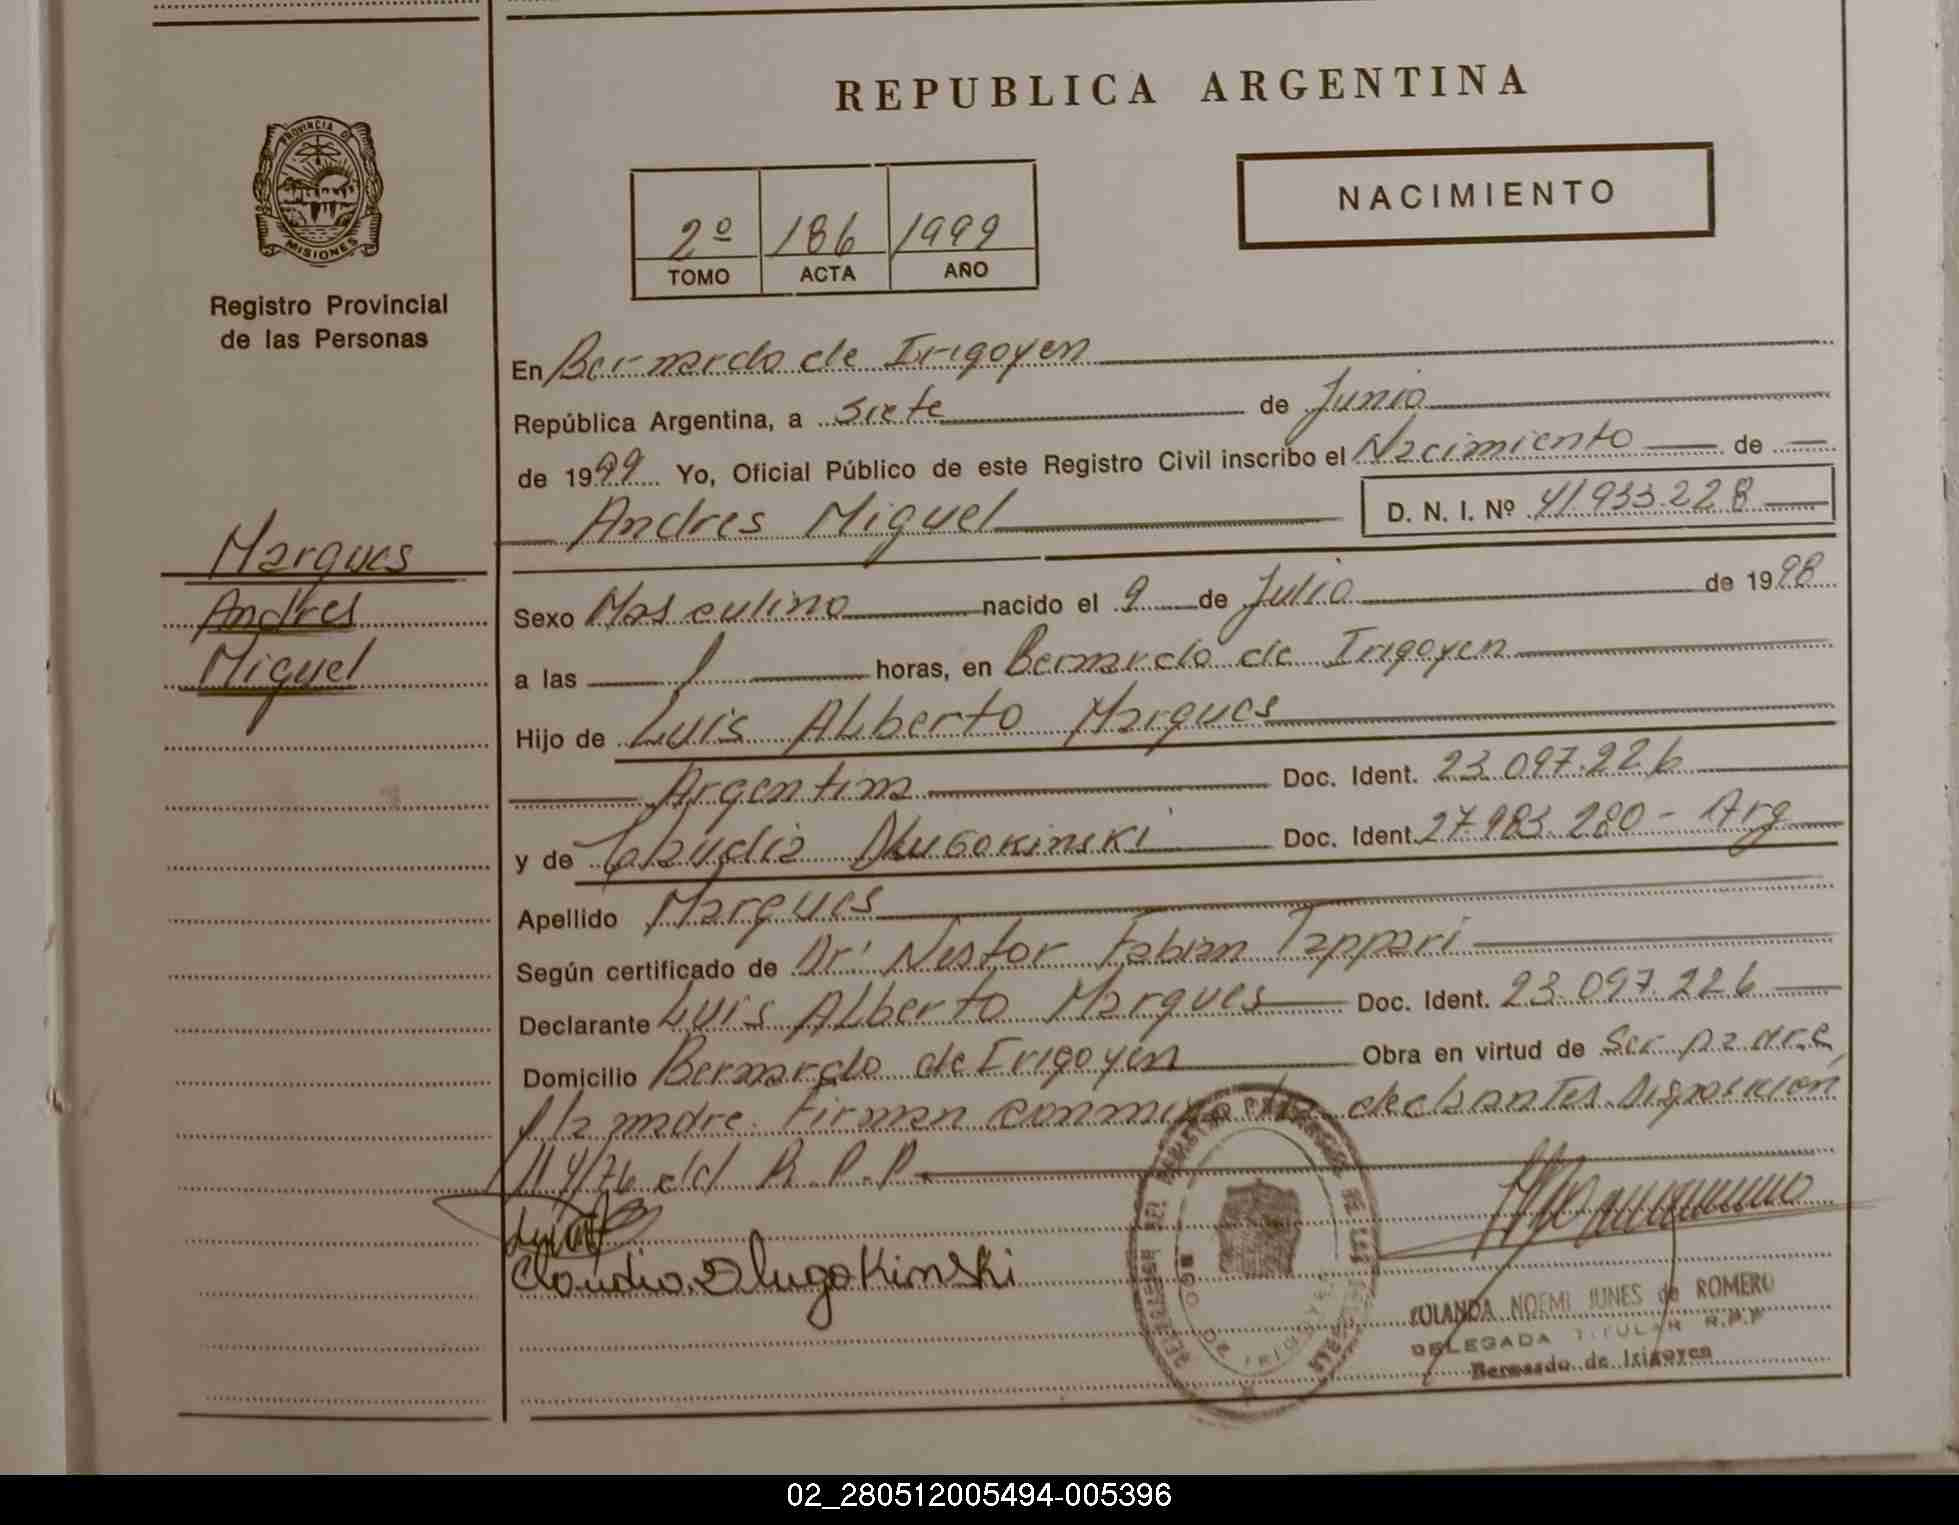 REPUBLICA ARGENTINA
NACIMIENTO
2º 186 1999
TOMO ACTA AÑO
PROVINCIA DE MISIONES
Registro Provincial
de las Personas
Marques
Andres
Miguel
En Bernardo de Irigoyen
República Argentina, a siete de Junio
de 1999 Yo, Oficial Público de este Registro Civil inscribo el Nacimiento de
Andres Miguel D. N. I. Nº 41.933.228
Sexo Masculino nacido el 9 de Julio de 1998
a las horas, en Bernardo de Irigoyen
Hijo de Luis Alberto Marques
Argentina Doc. Ident. 23.097.226
y de Claudia Dlugokinski Doc. Ident. 27.983.280 - Arg
Apellido Marques
Según certificado de Dr. Nestor Fabian Tappari
Declarante Luis Alberto Marques Doc. Ident. 23.097.226
Domicilio Bernardo de Irigoyen Obra en virtud de ser padre
y la madre. Firman conmigo los declarantes. Disposición
114/76 del R.P.P.
Claudia Dlugokinski
REGISTRO PROVINCIAL DE LAS
BDO DE IRIGOYEN
YOLANDA NOEMI JUNES de ROMERO
DELEGADA TITULAR R.P.P
Bernardo de Irigoyen
02_280512005494-005396